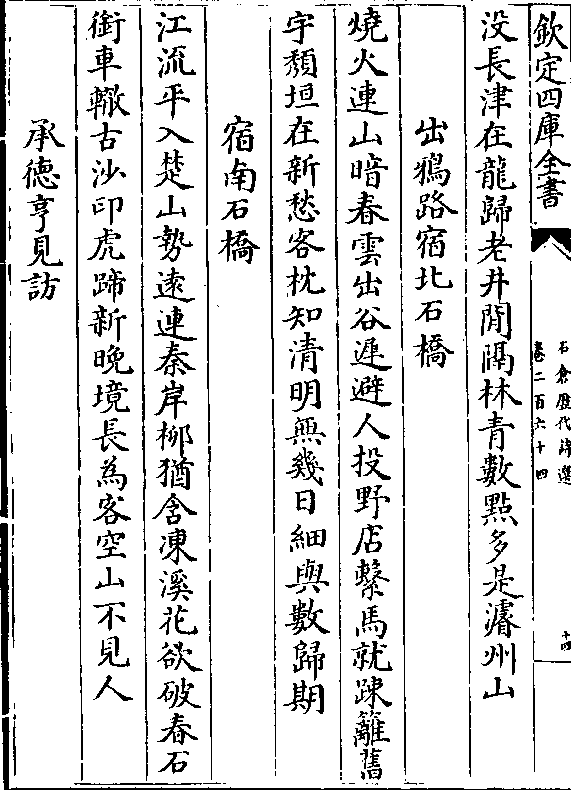 欽定四庫全書
石倉歷代詩選
卷二百六十四
十四
没長津在龍歸老井閒隔林青數點多是濬州山
出鵶路宿北石橋
燒火連山暗春雲出谷遲避人投野店繫馬就踈籬舊
宇頽垣在新愁客枕知清明無幾日細與數歸期
宿南石橋
江流平入楚山勢逺連秦岸柳猶含凍溪花欲破春石
銜車轍古沙印虎蹄新晚境長為客空山不見人
承德亨見訪